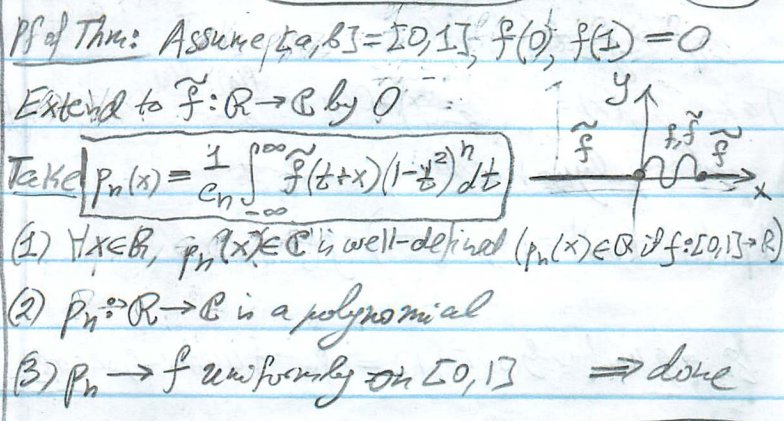 Pf of Thm: Assume [a,b]=[0,1], f(0), f(1)=0
Extend to f̃:ℝ→ℂ by 0
y
f̃ f,f̃ f̃
x
Take p_n(x) = 1/c_n ∫_{-∞}^{∞} f̃(t+x)(1-t²)^n dt
(1) ∀x∈ℝ, p_n(x)∈ℂ is well-defined (p_n(x)∈ℝ if f:[0,1]→ℝ)
(2) p_n:ℝ→ℂ is a polynomial
(3) p_n → f uniformly on [0,1] ⟹ done